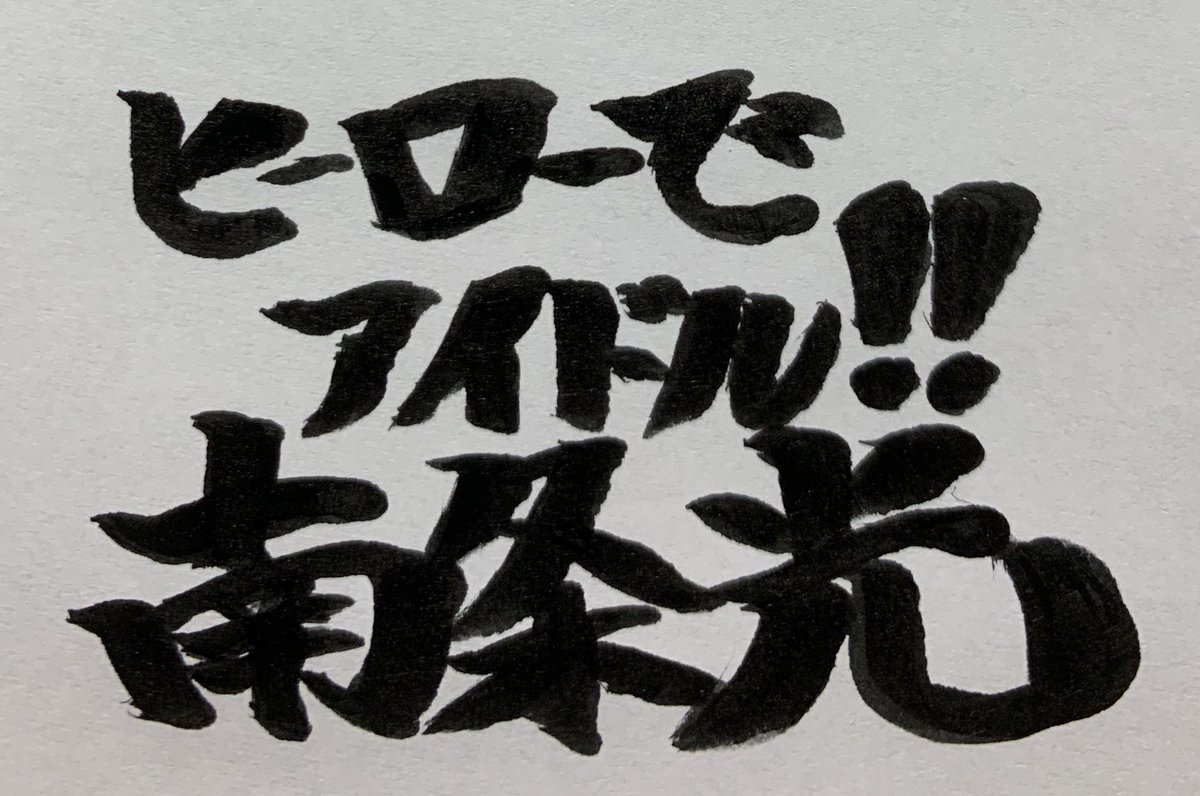 ヒーローで
アイドル!!
南条光